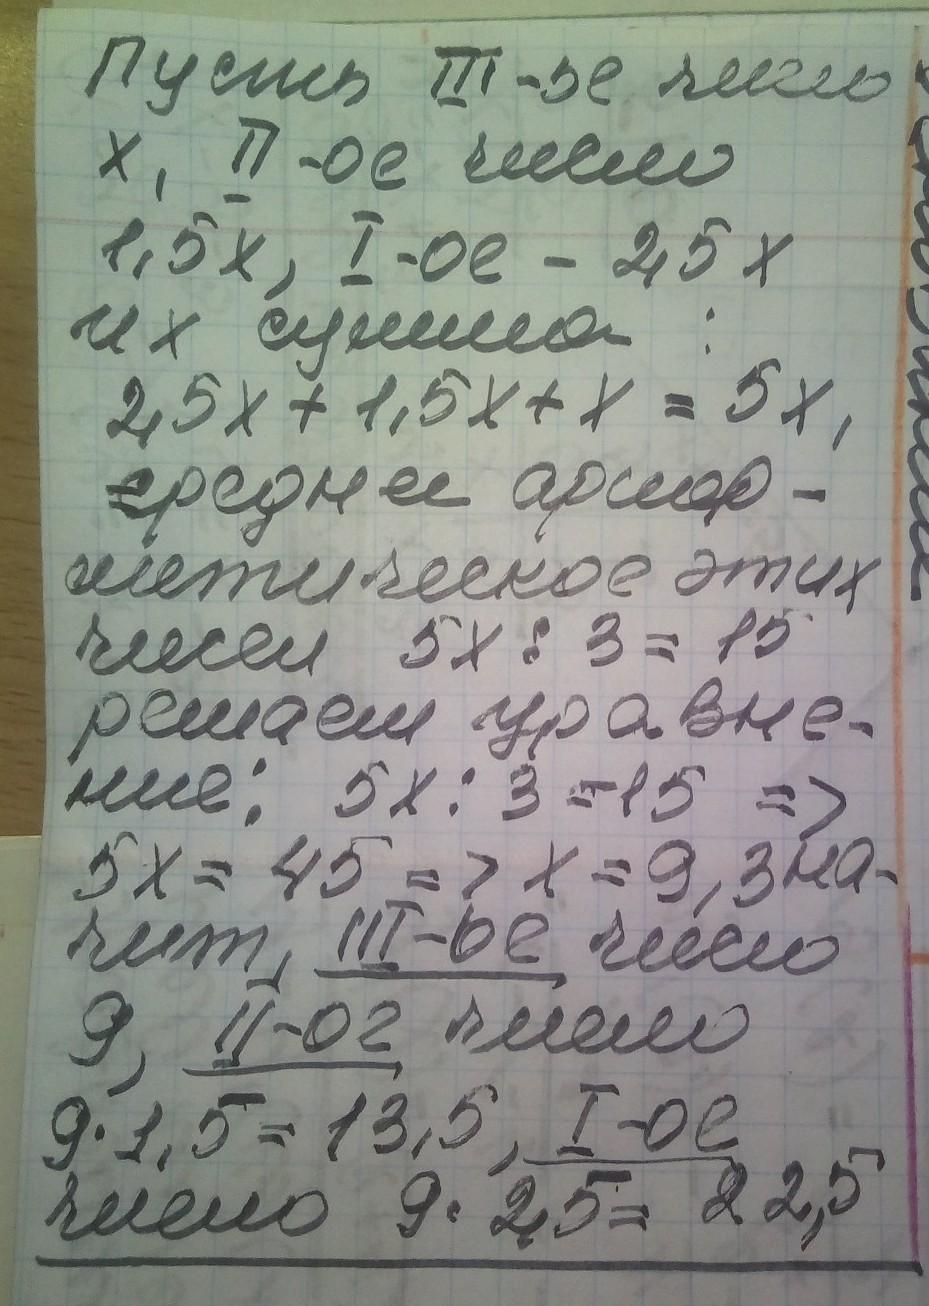 Пусть III-ье число
x, II-ое число
1,5x, I-ое - 2,5x
их сумма :
2,5x + 1,5x + x = 5x,
среднее ариф-
метическое этих
чисел 5x : 3 = 15
решаем уравне-
ние: 5x : 3 = 15 =>
5x = 45 => x = 9, зна-
чит, III-ье число
9, II-ое число
9·1,5 = 13,5, I-ое
число 9·2,5 = 22,5